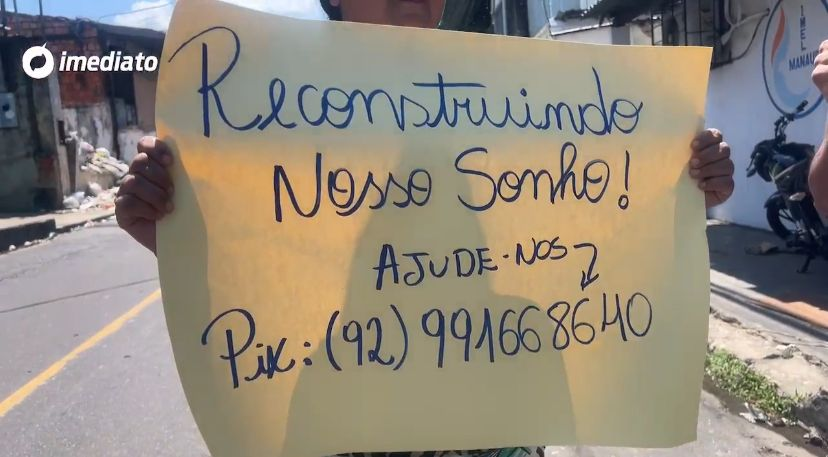 imediato
Reconstruindo
Nosso Sonho!
AJUDE-NOS
Pix: (92) 991668640
MANAUS